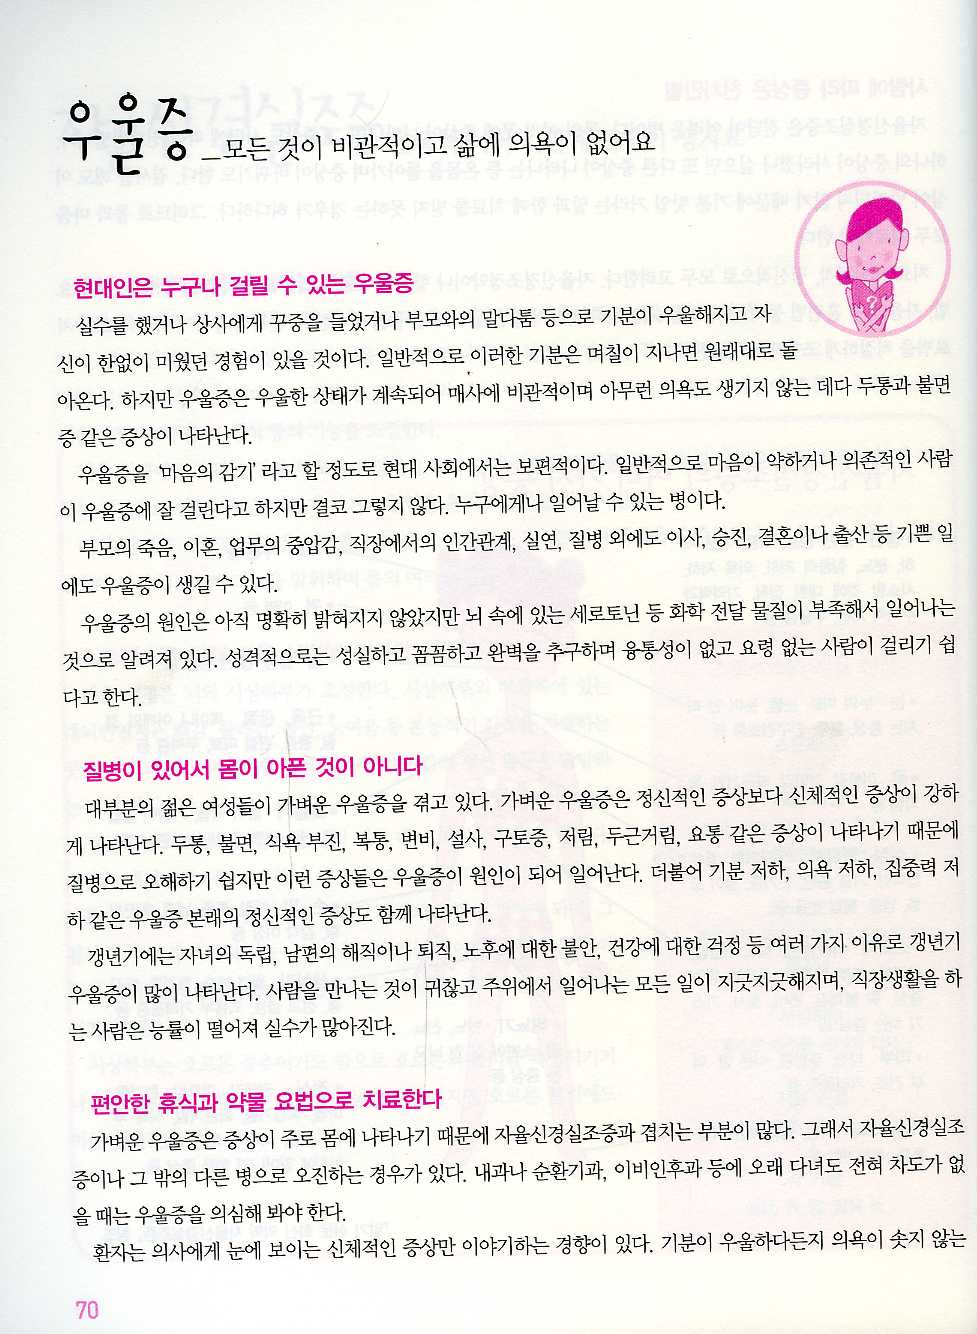 우울증_모든 것이 비관적이고 삶에 의욕이 없어요
현대인은 누구나 걸릴 수 있는 우울증
실수를 했거나 상사에게 꾸중을 들었거나 부모와의 말다툼 등으로 기분이 우울해지고 자
신이 한없이 미웠던 경험이 있을 것이다. 일반적으로 이러한 기분은 며칠이 지나면 원래대로 돌
아온다. 하지만 우울증은 우울한 상태가 계속되어 매사에 비관적이며 아무런 의욕도 생기지 않는 데다 두통과 불면
증 같은 증상이 나타난다.
우울증을 ‘마음의 감기’라고 할 정도로 현대 사회에서는 보편적이다. 일반적으로 마음이 약하거나 의존적인 사람
이 우울증에 잘 걸린다고 하지만 결코 그렇지 않다. 누구에게나 일어날 수 있는 병이다.
부모의 죽음, 이혼, 업무의 중압감, 직장에서의 인간관계, 실연, 질병 외에도 이사, 승진, 결혼이나 출산 등 기쁜 일
에도 우울증이 생길 수 있다.
우울증의 원인은 아직 명확히 밝혀지지 않았지만 뇌 속에 있는 세로토닌 등 화학 전달 물질이 부족해서 일어나는
것으로 알려져 있다. 성격적으로는 성실하고 꼼꼼하고 완벽을 추구하며 융통성이 없고 요령 없는 사람이 걸리기 쉽
다고 한다.
질병이 있어서 몸이 아픈 것이 아니다
대부분의 젊은 여성들이 가벼운 우울증을 겪고 있다. 가벼운 우울증은 정신적인 증상보다 신체적인 증상이 강하
게 나타난다. 두통, 불면, 식욕 부진, 복통, 변비, 설사, 구토증, 저림, 두근거림, 요통 같은 증상이 나타나기 때문에
질병으로 오해하기 쉽지만 이런 증상들은 우울증이 원인이 되어 일어난다. 더불어 기분 저하, 의욕 저하, 집중력 저
하 같은 우울증 본래의 정신적인 증상도 함께 나타난다.
갱년기에는 자녀의 독립, 남편의 해직이나 퇴직, 노후에 대한 불안, 건강에 대한 걱정 등 여러 가지 이유로 갱년기
우울증이 많이 나타난다. 사람을 만나는 것이 귀찮고 주위에서 일어나는 모든 일이 지긋지긋해지며, 직장생활을 하
는 사람은 능률이 떨어져 실수가 많아진다.
편안한 휴식과 약물 요법으로 치료한다
가벼운 우울증은 증상이 주로 몸에 나타나기 때문에 자율신경실조증과 겹치는 부분이 많다. 그래서 자율신경실조
증이나 그 밖의 다른 병으로 오진하는 경우가 있다. 내과나 순환기과, 이비인후과 등에 오래 다녀도 전혀 차도가 없
을 때는 우울증을 의심해 봐야 한다.
환자는 의사에게 눈에 보이는 신체적인 증상만 이야기하는 경향이 있다. 기분이 우울하다든지 의욕이 솟지 않는
70